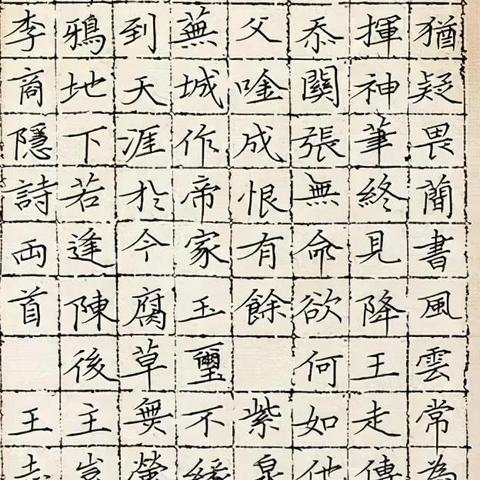 猶疑畏蕳書風雲常為
揮神筆終見降王走傳
忝關張無命欲何如他
父唫成恨有餘 紫泉
蕪城作帝家玉璽不緣
到天涯於今腐草無螢
鴉地下若逢陳後主豈
李商隱詩兩首 王